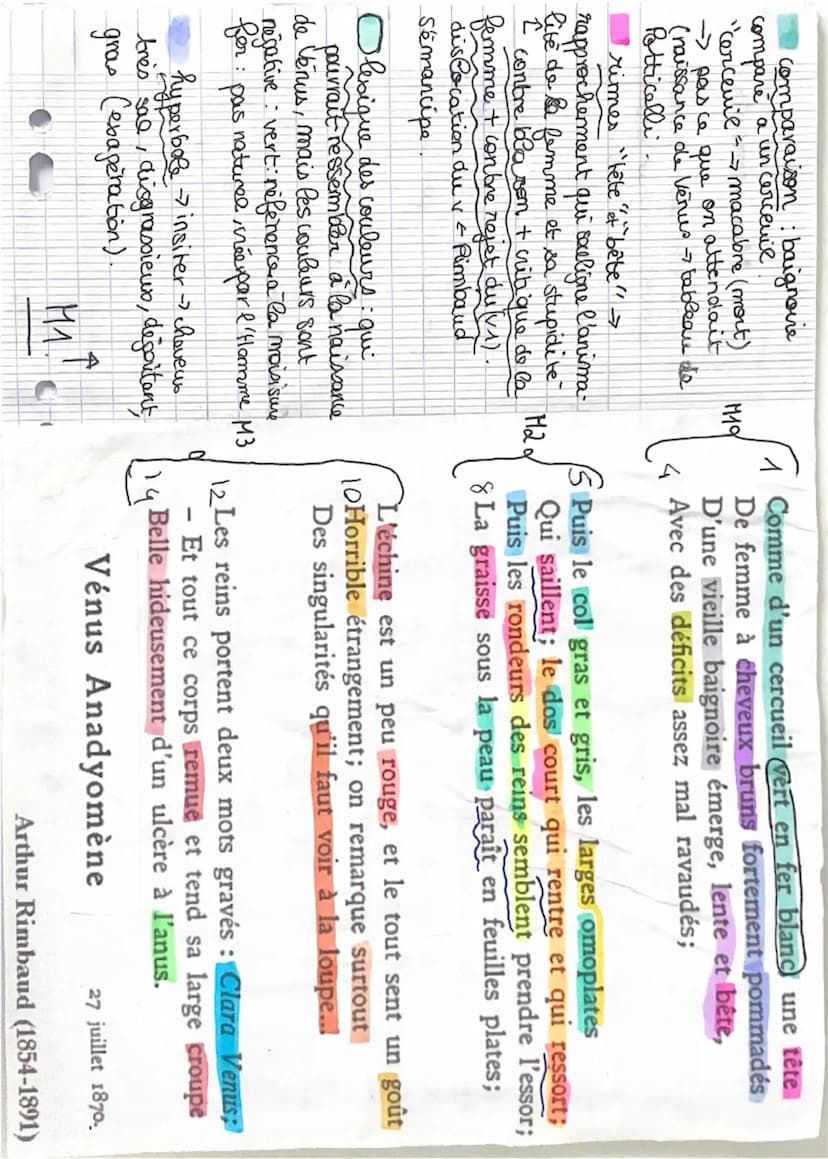 comparaison : baignoire
comparé à un cerceuil.
"cerceuil" → macabre (mort)
→ pas ce que on attendait
(naissance de Vénus → tableau de
Botticelli.
rimes "tête" et "bête" →
rapprochement qui souligne l'anima-
lité de la femme et sa stupidité
↑ contre blason + critique de la
femme + contre rejet du (v1).
dislocation du v ← Rimbaud
s'émancipe.
lexique des couleurs : qui
pourrait ressembler à la naissance
de Vénus, mais les couleurs sont
négative : vert : référence à la moisissure
fer : pas naturel, créé par l'Homme
hyperbole → insiter → cheveux
très sal, disgrassieux, dégoitant,
gras (exagération).
M1 ↑
M1
1 Comme d'un cercueil vert en fer blanc, une tête
De femme à cheveux bruns fortement pommadés
D'une vieille baignoire émerge, lente et bête,
4 Avec des déficits assez mal ravaudés;
M2
5 Puis le col gras et gris, les larges omoplates
Qui saillent; le dos court qui rentre et qui ressort;
Puis les rondeurs des reins semblent prendre l'essor;
8 La graisse sous la peau paraît en feuilles plates;
M3
L'échine est un peu rouge, et le tout sent un goût
10 Horrible étrangement; on remarque surtout
Des singularités qu'il faut voir à la loupe...
12 Les reins portent deux mots gravés : Clara Venus;
– Et tout ce corps remue et tend sa large croupe
14 Belle hideusement d'un ulcère à l'anus.
Vénus Anadyomène
27 juillet 1870.
Arthur Rimbaud (1854-1891)